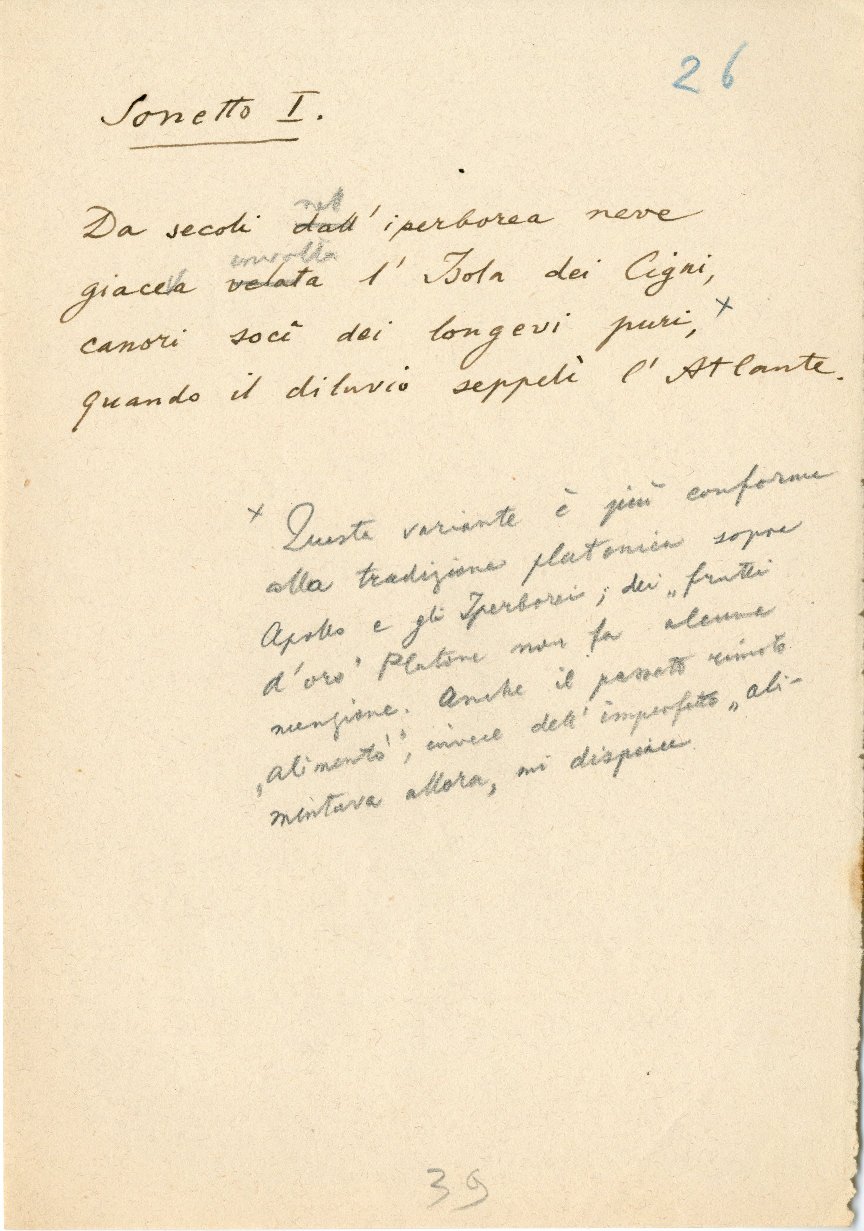 26
Sonetto I.
nel
Da secoli dall' iperborea neve
involta
giacea velata l' Isola dei Cigni,
canori socî dei longevi puri, ×
quando il diluvio seppelì l' Atlante.
× Questa variante è più conforme
alla tradizione platonica sopra
Apollo e gli Iperborei; dei „frutti
d'oro" Platone non fa alcuna
menzione. Anche il passato rimoto
„alimentò", invece dell' imperfetto „ali-
mentava allora, mi dispiace
39